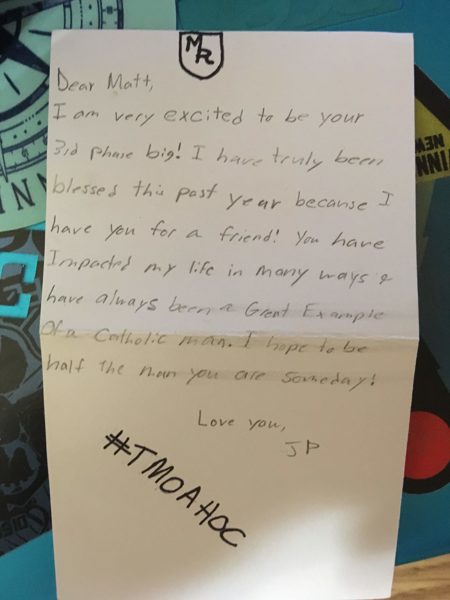 MR
Dear Matt,
I am very excited to be your
3rd phase big! I have truly been
blessed this past year because I
have you for a friend! You have
Impacted my life in many ways &
have always been a Great Example
Of a Catholic man. I hope to be
half the man you are someday!
Love you,
JP
#TMOAHOC
INN
NEW